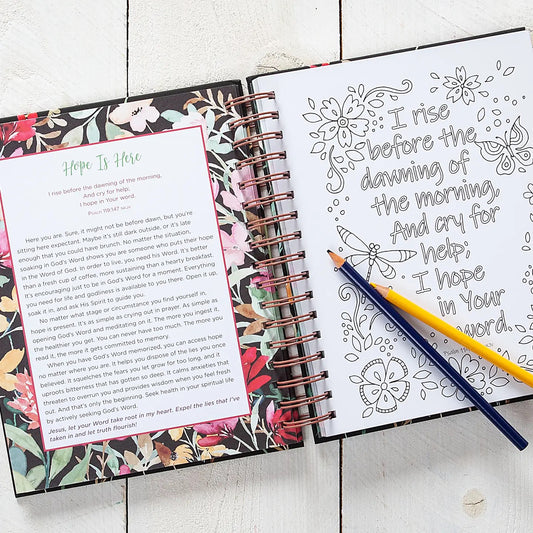 Hope Is Here
I rise before the dawning of the morning,
And cry for help;
I hope in Your word.
Psalm 119:147 NKJV
Here you are. Sure, it might not be before dawn, but you're
sitting here expectant. Maybe it's still dark outside, or it's late
enough that you could have brunch. No matter the situation,
soaking in God's Word shows you are someone who puts their hope
in the Word of God. In order to live, you need his Word. It's better
than a fresh cup of coffee, more sustaining than a hearty breakfast,
it's encouraging just to be in God's Word for a moment. Everything
you need for life and godliness is available to you there. Open it up,
soak it in, and ask His Spirit to guide you.
No matter what stage or circumstance you find yourself in,
hope is present. It's as simple as crying out in prayer. As simple as
opening God's Word and meditating on it. The more you ingest it,
the healthier you get. You can never have too much. The more you
read it, the more it gets committed to memory.
When you have God's Word memorized, you can access hope
no matter where you are. It helps you dispose of the lies you once
believed. It squelches the fears you let grow for too long, and it
uproots bitterness that has gotten so deep. It calms anxieties that
threaten to overrun you and provides wisdom when you feel free
out. And that's only the beginning. Seek health in your spiritual life
by actively seeking God's Word.
Jesus, let your Word take root in my heart. Expel the lies that I've
taken in and let truth flourish!
I rise
before the
dawning of
the morning,
And cry for
help;
I hope
in Your
word.
Psalm